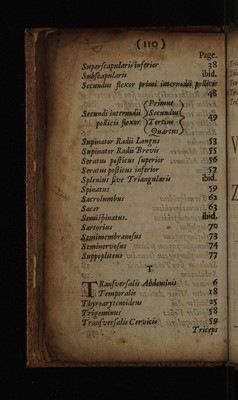 (110)
Page.
Superscapularis inferior 38
Subscapularis ibid.
Secundus flexor primi internodii pollicis 48
Primus
Secundi internodii Secundus
pollicis flexor Tertius 49
Quartus
Supinator Radii Longus 53
Supinator Radii Brevis 55
Seratus posticus superior 56
Seratus posticus inferior 57
Splenius sive Triangularis ibid.
Spinatus 59
Sacrolumbus 62
Sacer 63
Semispinatus. ibid.
Sartorius 70
Semimembranosus 73
Seminervosus 74
Suppopliteus 77
T
TRansversalis Abdominis 6
Temporalis 18
Thyroarytenoideus 25
Trigeminus 58
Transversalis Cervicis 59
Triceps